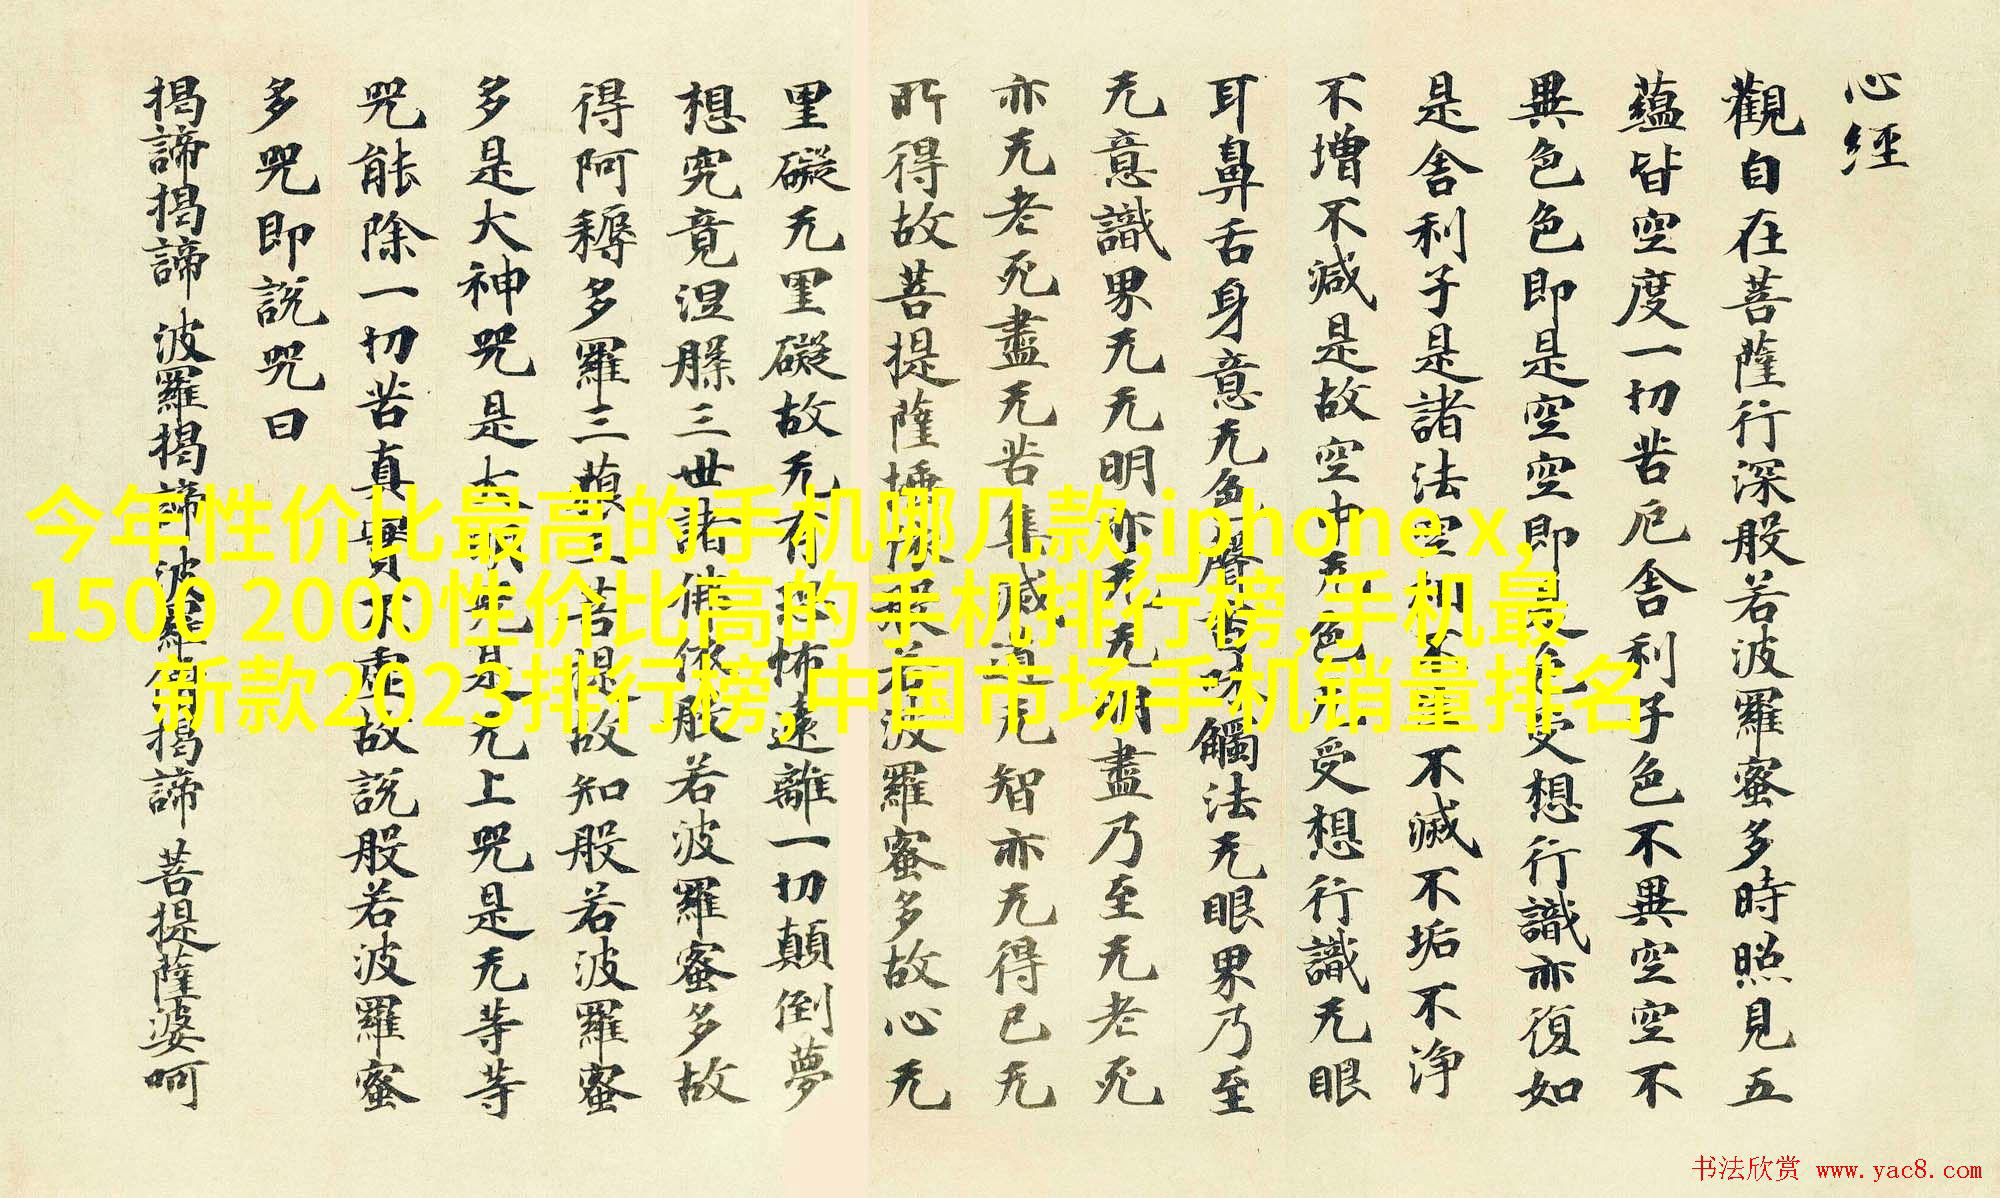 心經
觀自在菩薩行深般若波羅蜜多時照見五
蘊皆空度一切苦厄舍利子色不異空空不
異色色即是空空即是色受想行識亦復如
是舍利子是諸法空相不生不滅不垢不浄
不增不減是故空中无色无受想行識无眼
耳鼻舌身意无色聲香味觸法无眼界乃至
无意識界无无明亦无无明盡乃至无老死
亦无老死盡无苦集滅道无智亦无得已无
所得故菩提薩埵依般若波羅蜜多故心无
罣礙无罣礙故无有恐怖遠離一切顛倒夢
想究竟涅槃三世諸佛依般若波羅蜜多故
得阿耨多羅三藐三菩提故知般若波羅蜜
多是大神咒是大明咒是无上咒是无等等
咒能除一切苦真實不虛故說般若波羅蜜
多咒即說咒曰
揭諦揭諦 波羅揭諦 波羅僧揭諦 菩提薩婆呵
今年性价比最高的手机哪几款,iphone x,
1500 2000性价比高的手机排行榜,手机最
新款2023排行榜,中国市场手机销量排名
书法欣赏 www.yac8.com